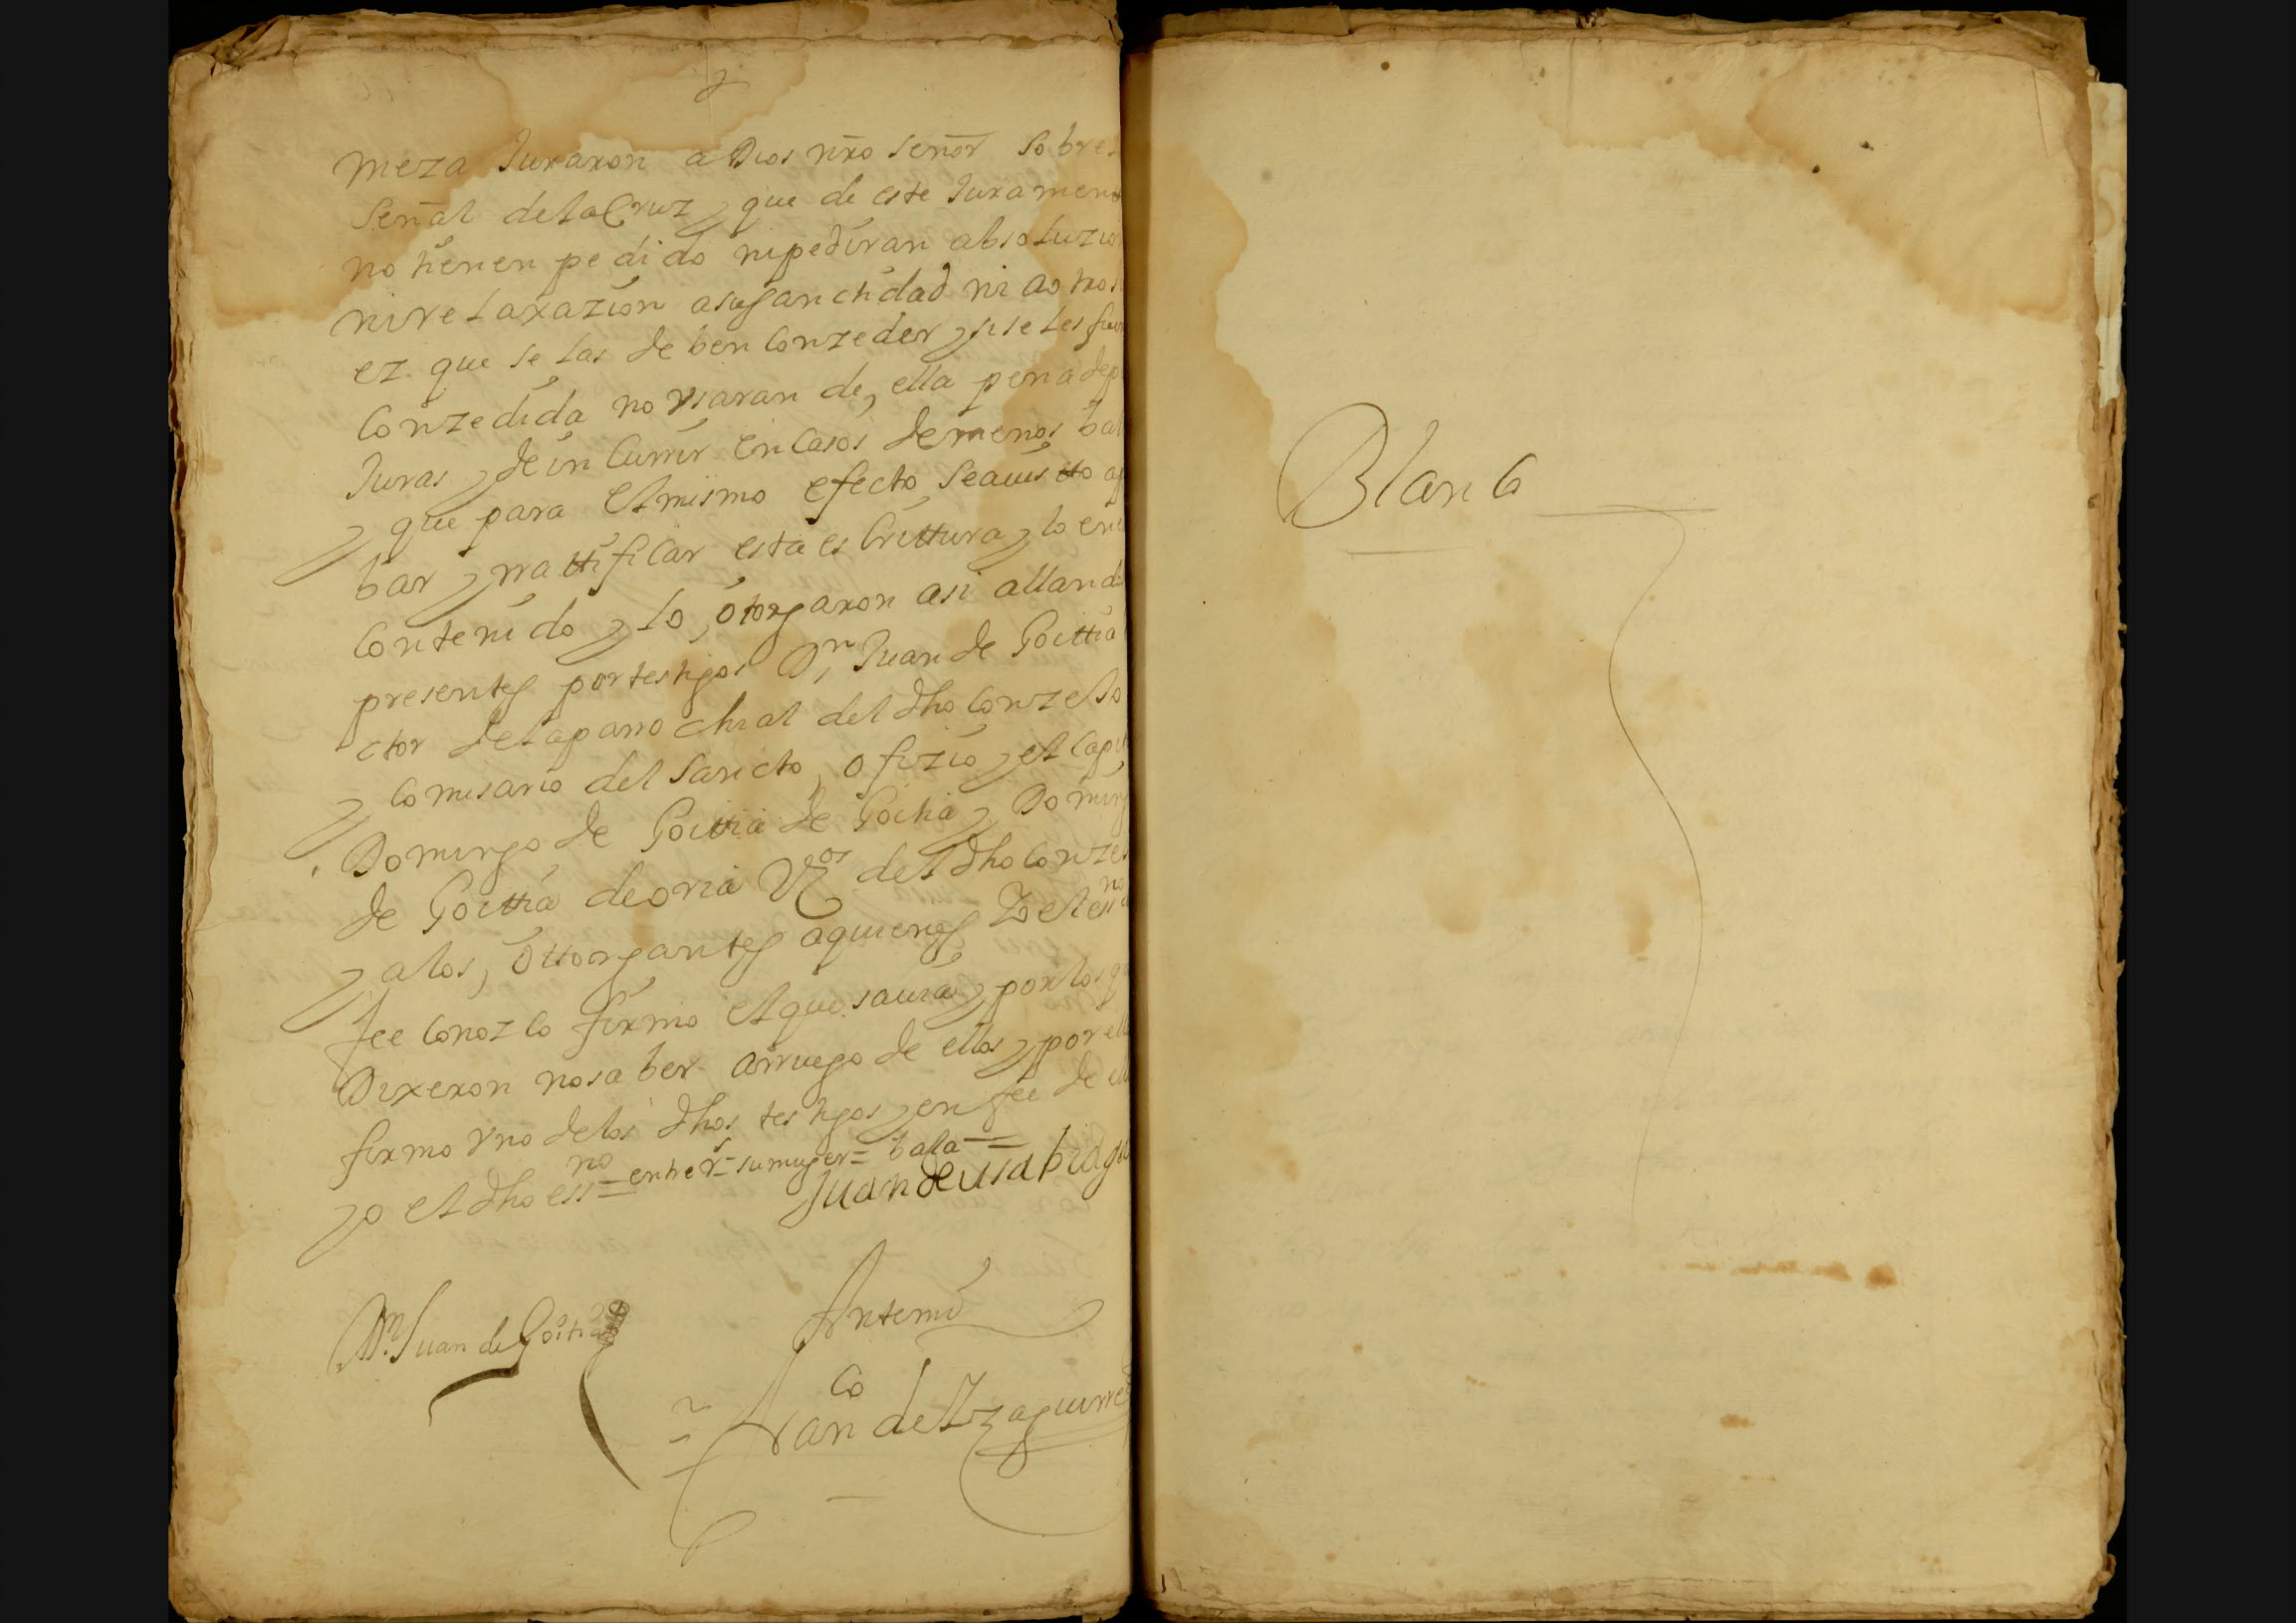 meza Juraron a Dios nro señor sobre
señal de la Cruz y que de este Jurament
no tienen pedido ni pediran absoluzion
ni relaxazion a su sanctidad ni a otro
ez que se las deben Conzeder y si se les fue
Conzedida no vsaran de ella pena de pe
Juras y de in Currir en Casos de menos bal
y que para el mismo efecto sea uistto a
bar y rrattificar esta es Crittura y lo en
Contenido y lo otorgaron asi alland
presentes por testigos Dn Juan de Goittia
ctor de la parrochial del dho Conzejo
y Comisario del Sancto ofizio y el Cap
Domingo de Goittia de Goitia y Doming
de Goittia de oria Vzos del dho Conze
y a los ottorgantes a quienes Yo el essno
fee Conozco firmo el que sauia y por los q
Dixeron no saber a rruego de ellos y por ell
firmo vno de los dhos testigos y en fee de ell
yo el dho essno = entre Rs = su muger = balla =
Juan de usabiaga
Dn. Juan de Goitia
Antemi
Franco de Yzaguirre
Blanco